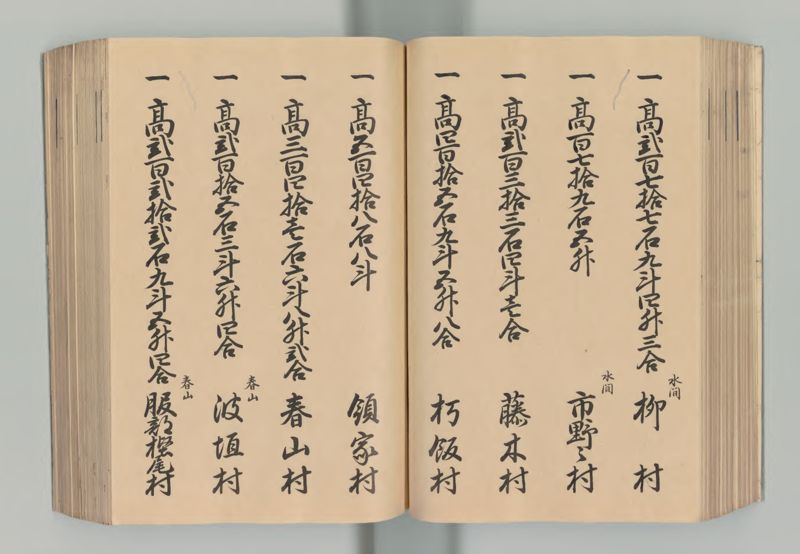 一 高弐百七拾七石九斗四升三合 水間 柳村
一 高百七拾九石五升 水間 市野々村
一 高弐百三拾三石四斗壱合 藤木村
一 高四百拾五石九斗五升八合 朽飯村
一 高五百四拾八石八斗 領家村
一 高三百四拾壱石六斗八升弐合 春山村
一 高弐百拾五石三斗六升四合 春山 波垣村
一 高弐百弐拾弐石九斗五升四合 春山 服部樫尾村